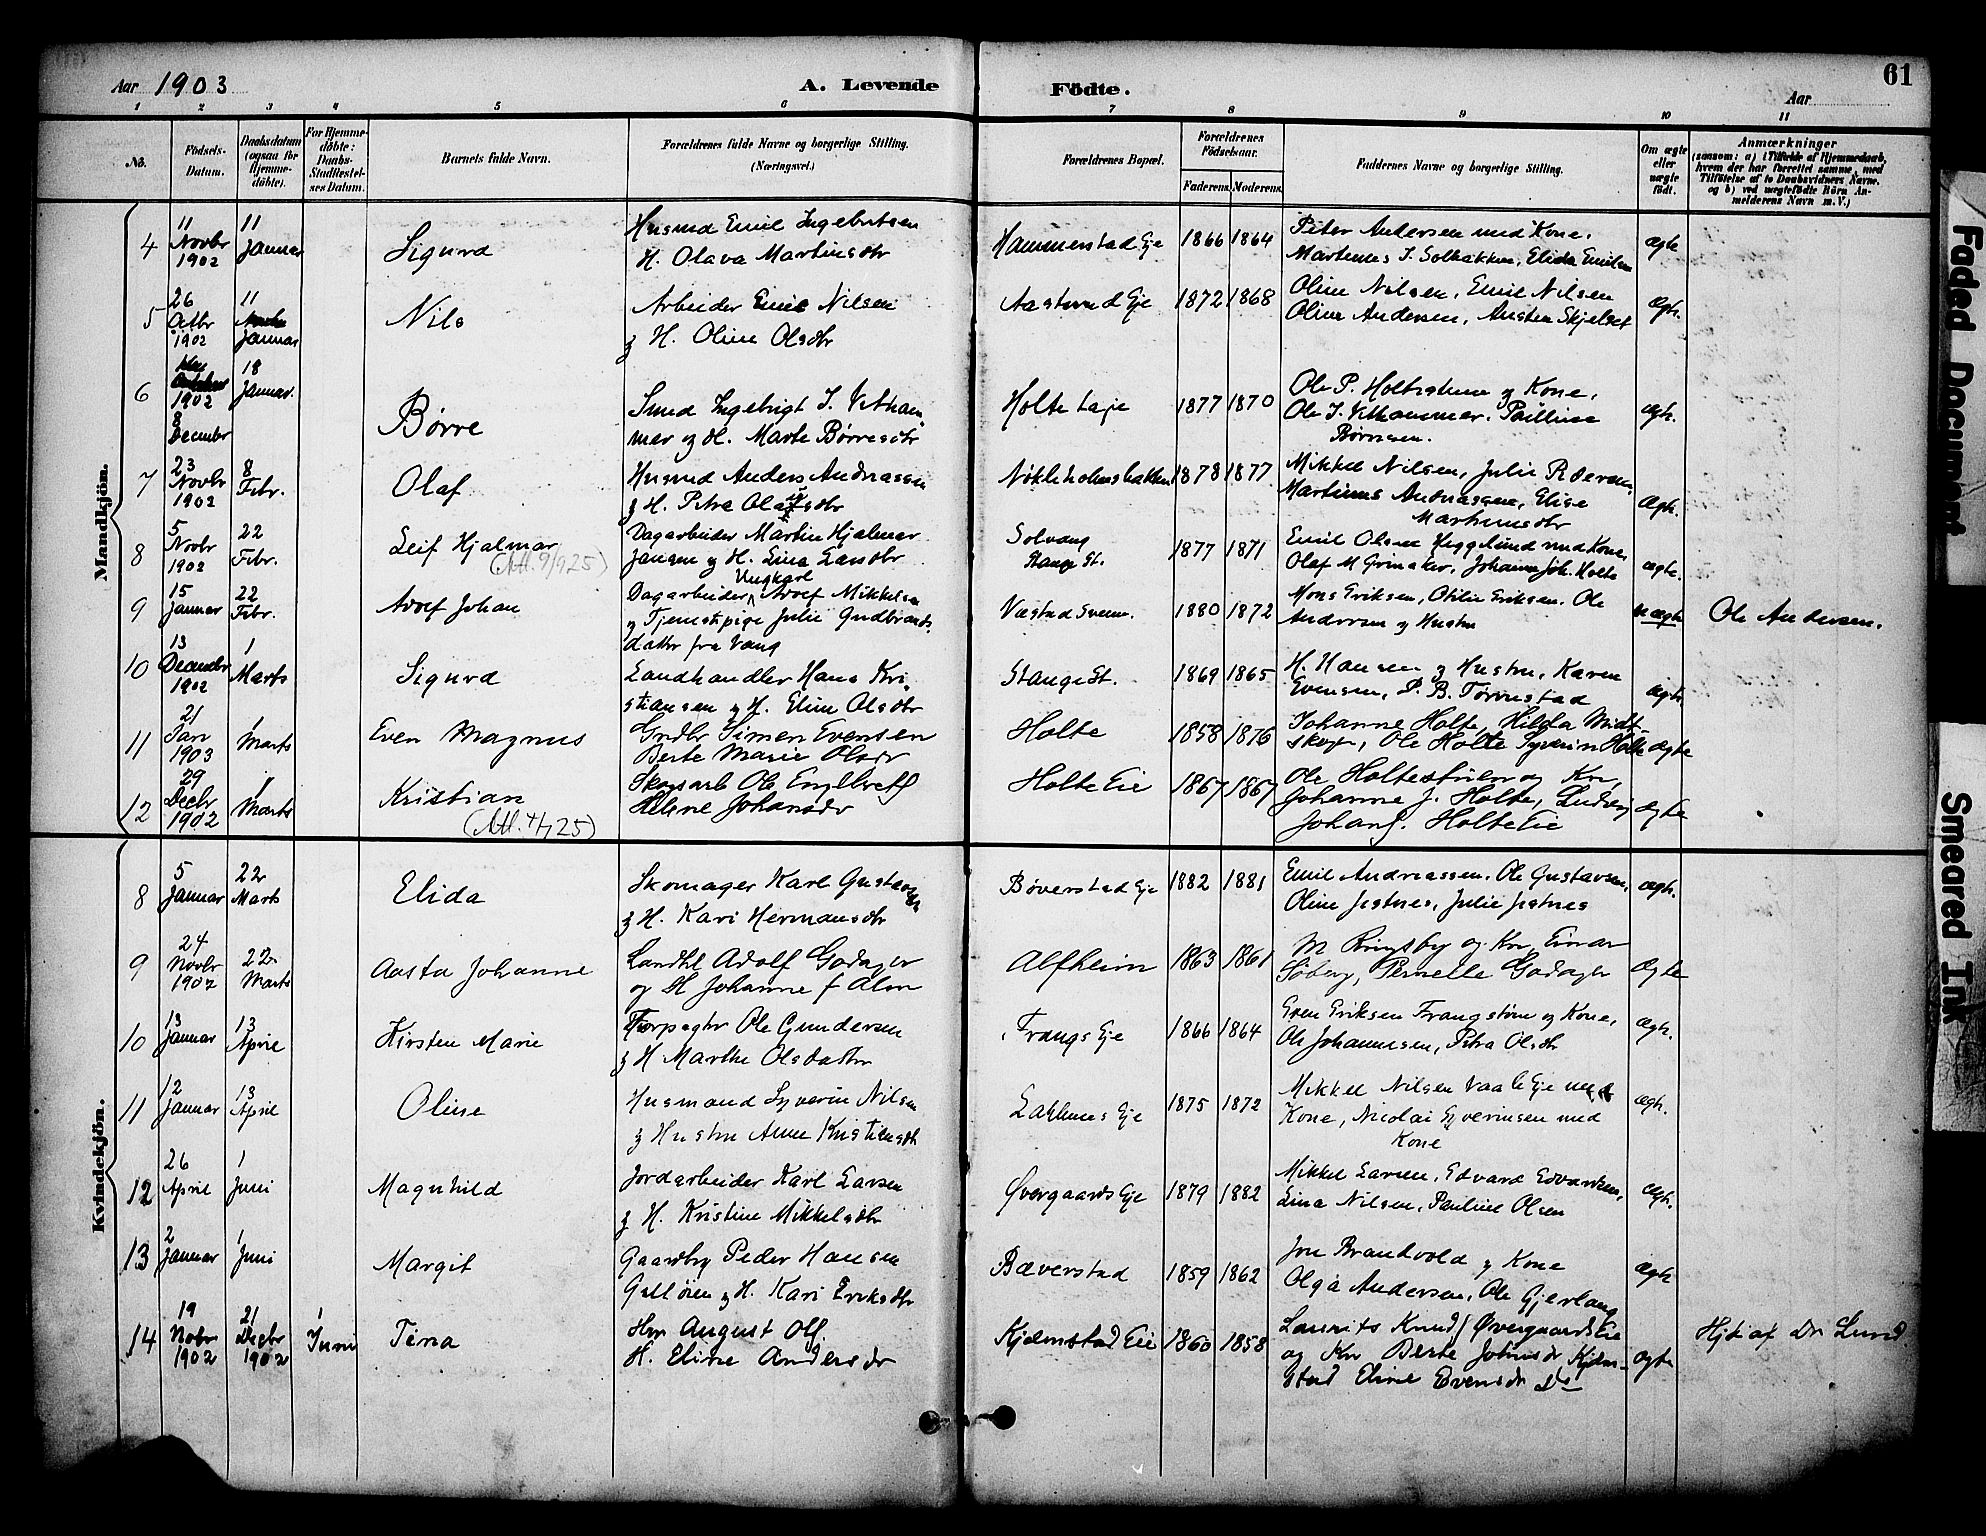 61
Aar 1903 A. Levende Födte. Aar
1 2 3 4 5 6 7 8 9 10 11
No. Födsels-Datum. Daabsdatum (ogsaa for Hjemme-döbte). For Hjemme-döbte: Daabs-Stadfæstel-ses Datum. Barnets fulde Navn. Forældrenes fulde Navne og borgerlige Stilling. (Næringsvei.) Forældrenes Bopæl. Forældrenes Födselsaar. Faderens. Moderens. Faddernes Navne og borgerlige Stilling. Om ægte eller uægte födt. Anmærkninger (saasom: a) i Tilfælde af Hjemmedaab, hvem der har forrettet samme, med Tilföielse af to Daabsvidners Navne. og b) ved uægtefödte Börn An-melderens Navn m. V.)
Mandkjön.
4 11 Novbr 1902 11 Januar Sigurd Husmd Emil Ingebretsen
H. Olava Martinsdtr Hammerstad Eje 1866 1864 Peter Andersen med Kone,
Martinus J. Solbakken, Elida Emilsen ægte
5 26 Octbr 1902 11 Januar Nils Arbeider Emil Nilsen
g H. Oline Olsdtr Aastrund Eje 1872 1868 Oline Nilsen, Emil Nilsen
Oline Andersen, Austen Skjelset ægte.
6 1902 8 Decembr 18 Januar. Börre Smed Ingebrigt J. Vetham
mer og H. Marte Börresdtr Holte Eje 1877 1870 Ole P. Holtestuen og Kone,
Ole J. Vethammer. Pauline
Börresen. ægte.
7 23 Novbr 1902 8 Febr. Olaf Husmd Anders Andreassen
g H. Petra Olafsdtr Nökleholmsbakken 1878 1877 Mikkel Nilsen, Julie Pedersen,
Martinus Andreassen, Elise
Martinusdtr ægte.
8 5 Novbr 1902 22 Febr. Leif Hjalmar
(Att. 9/9 25) Dagarbeider Martin Hjalmar
Jansen og H. Lina Larsdtr Solvang
Stange St. 1877 1871 Emil Olsen Heggelund med Kone,
Olaf M Grinaker, Johanne Joh. Holte ægte.
9 15 Januar 22 Febr. Adolf Johan Dagarbeider, Ungkarl Adolf Mikkelsen
og Tjenestepige Julie Gudbrands
datter fra Vang Væstad Svenn. 1880 1872 Mons Eriksen, Otilie Eriksen. Ole
Andersen og Hustru uægte Ole Andersen.
10 13 Decembr 1902 1 Marts Sigurd Landhandler Hans Kri
stiansen og H. Eline Olsdtr Stange St. 1869 1865 H. Hansen og Hustru, Karen
Evensen, P. B. Törrestad ægte
11 21 Jan 1903 1 Marts Even Magnus Grdbr Simen Evensen
Berte Marie Olsdr Holte 1858 1876 Johanne Holte, Hilda Midt-
skog, Ole Holte Syverin Holte ægte
12 29 Decbr 1902 1 Marts Kristian
(Att. 4/7 25) Skogsarb Ole Engebreth
Helene Johansdr Holte Eie 1867 1867 Ole Holtestuen og Kn,
Johanne J. Holte, Ludvig
Johans. Holte Eie ægte
Kvindekjön.
8 5 Januar 22 Marts Elida Skomager Karl Gustavsen
g H. Kari Hermansdtr Böverstad Eje 1882 1881 Emil Andreassen, Ole Gustavsen,
Oline Jestnes, Julie Jestnes ægte.
9 24 Novbr 1902 22 Marts Aasta Johanne Landhl Adolf Godager
og H Johanne f Alm Alfheim 1863 1861 M Ringsby og Kn, Einar
Söberg, Pernelle Godager ægte
10 13 Januar 13 April Kirsten Marie Forpagtr Ole Gundersen
g H Marthe Olsdatter Frangs Eje 1866 1864 Even Eriksen Frangstuen og Kone,
Ole Johannesen, Petra Olsdtr ægte.
11 12 Januar 13 April Oline Husmand Syverin Nilsen
g Hustru Anne Kristiansdtr Lakkenes Eje 1875 1872 Mikkel Nilsen Vaale Eje med
Kone, Nicolai Syverinsen med
Kone ægte.
12 26 April 1 Juni Magnhild Jordarbeider Karl Larsen
g H. Kristine Mikkelsdtr Övergaards Eje 1879 1882 Mikkel Larsen, Edvard Edvardsen,
Lina Nilsen, Pauline Olsen ægte.
13 2 Januar 1 Juni Margit Gaardbr Peder Hansen
Gulløien og H. Kari Eriksdtr Bæverstad 1859 1862 Jon Brandvold og Kone
Olga Andersen, Ole Gjerlang ægte
14 19 Nobr 1902 21 Decbr 1902 1 Juni Tina Hm August Ols
H. Eline Andersdr Kjelmstad Eie 1860 1858 Laurits Knuds Øvergaards Eie
og Kn Berte Johnsdr Kjelm-
stad Eline Evensdr Do ægte Hjd. af Dr Lund
Faded Document
Smeared Ink